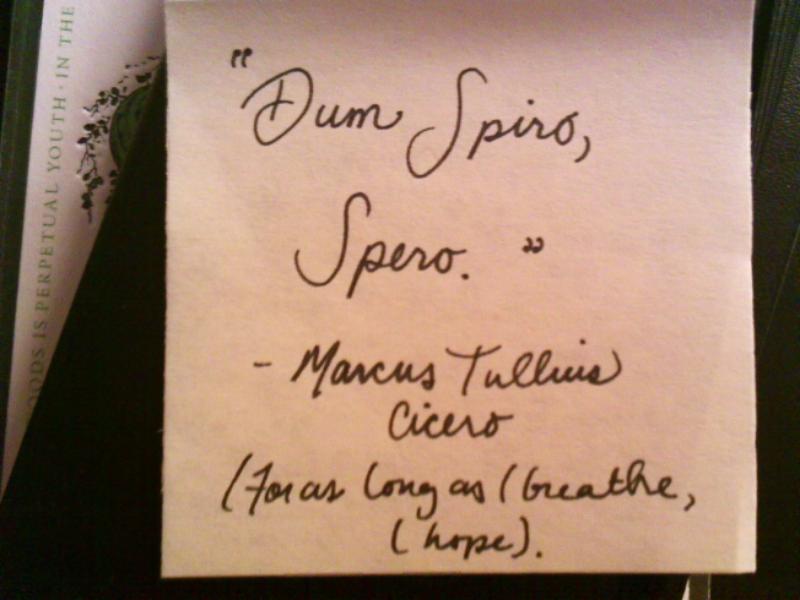 "Dum Spiro,
Spero."
- Marcus Tullius
Cicero
(For as long as I breathe,
I hope).
OODS IS PERPETUAL YOUTH · IN THE